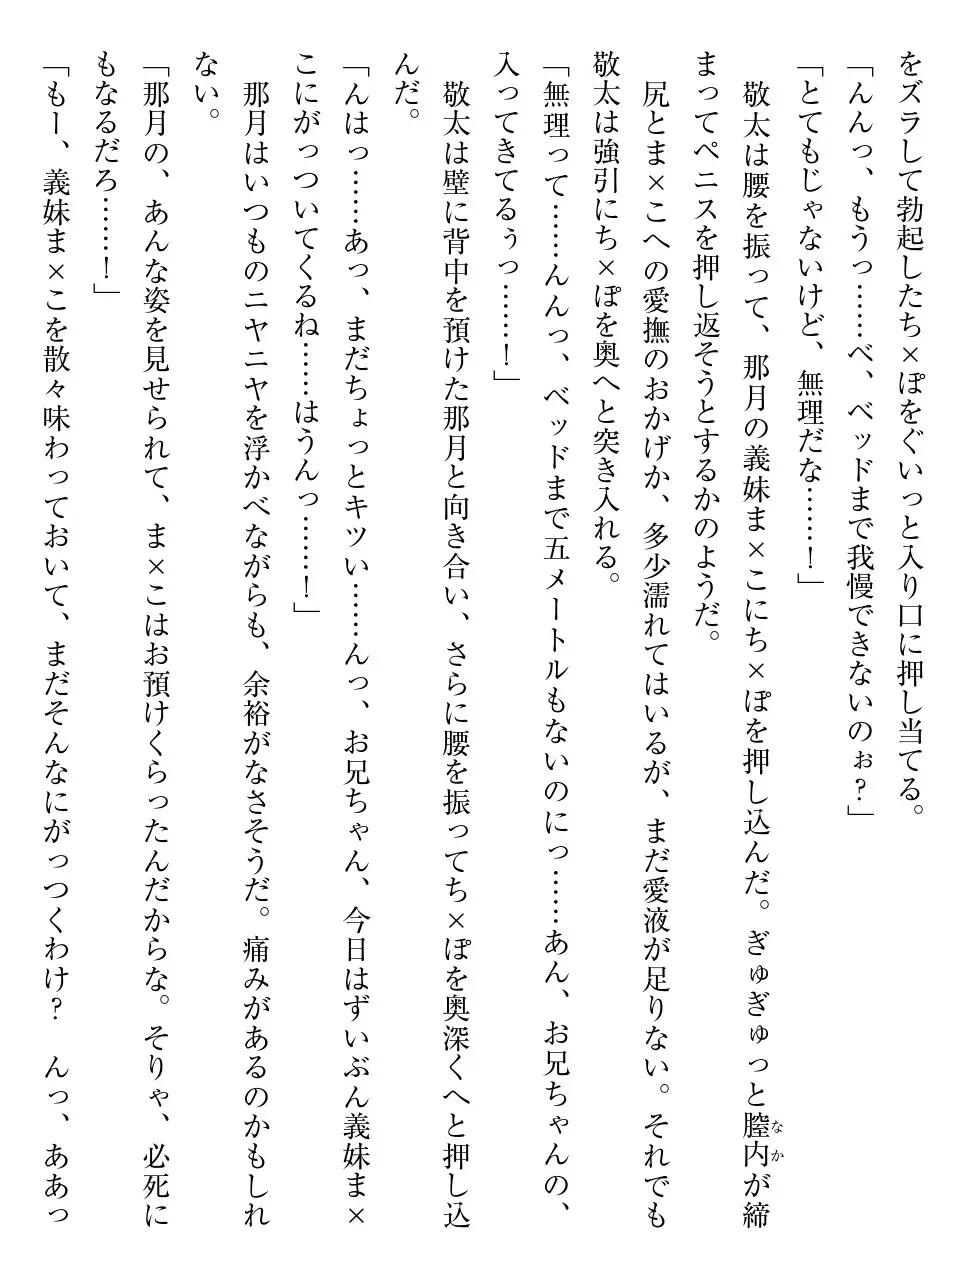 をズラして勃起したち×ぽをぐいっと入り口に押し当てる。
「んんっ、もうっ……べ、ベッドまで我慢できないのぉ？」
「とてもじゃないけど、無理だな……！」
　敬太は腰を振って、那月の義妹ま×こにち×ぽを押し込んだ。ぎゅぎゅっと膣内なかが締
まってペニスを押し返そうとするかのようだ。
　尻とま×こへの愛撫のおかげか、多少濡れてはいるが、まだ愛液が足りない。それでも
敬太は強引にち×ぽを奥へと突き入れる。
「無理って……んんっ、ベッドまで五メートルもないのにっ……あん、お兄ちゃんの、
入ってきてるぅっ……！」
　敬太は壁に背中を預けた那月と向き合い、さらに腰を振ってち×ぽを奥深くへと押し込
んだ。
「んはっ……あっ、まだちょっとキツい……んっ、お兄ちゃん、今日はずいぶん義妹ま×
こにがっついてくるね……はうんっ……！」
　那月はいつものニヤニヤを浮かべながらも、余裕がなさそうだ。痛みがあるのかもしれ
ない。
「那月の、あんな姿を見せられて、ま×こはお預けくらったんだからな。そりゃ、必死に
もなるだろ……！」
「もー、義妹ま×こを散々味わっておいて、まだそんなにがっつくわけ？　んっ、ああっ